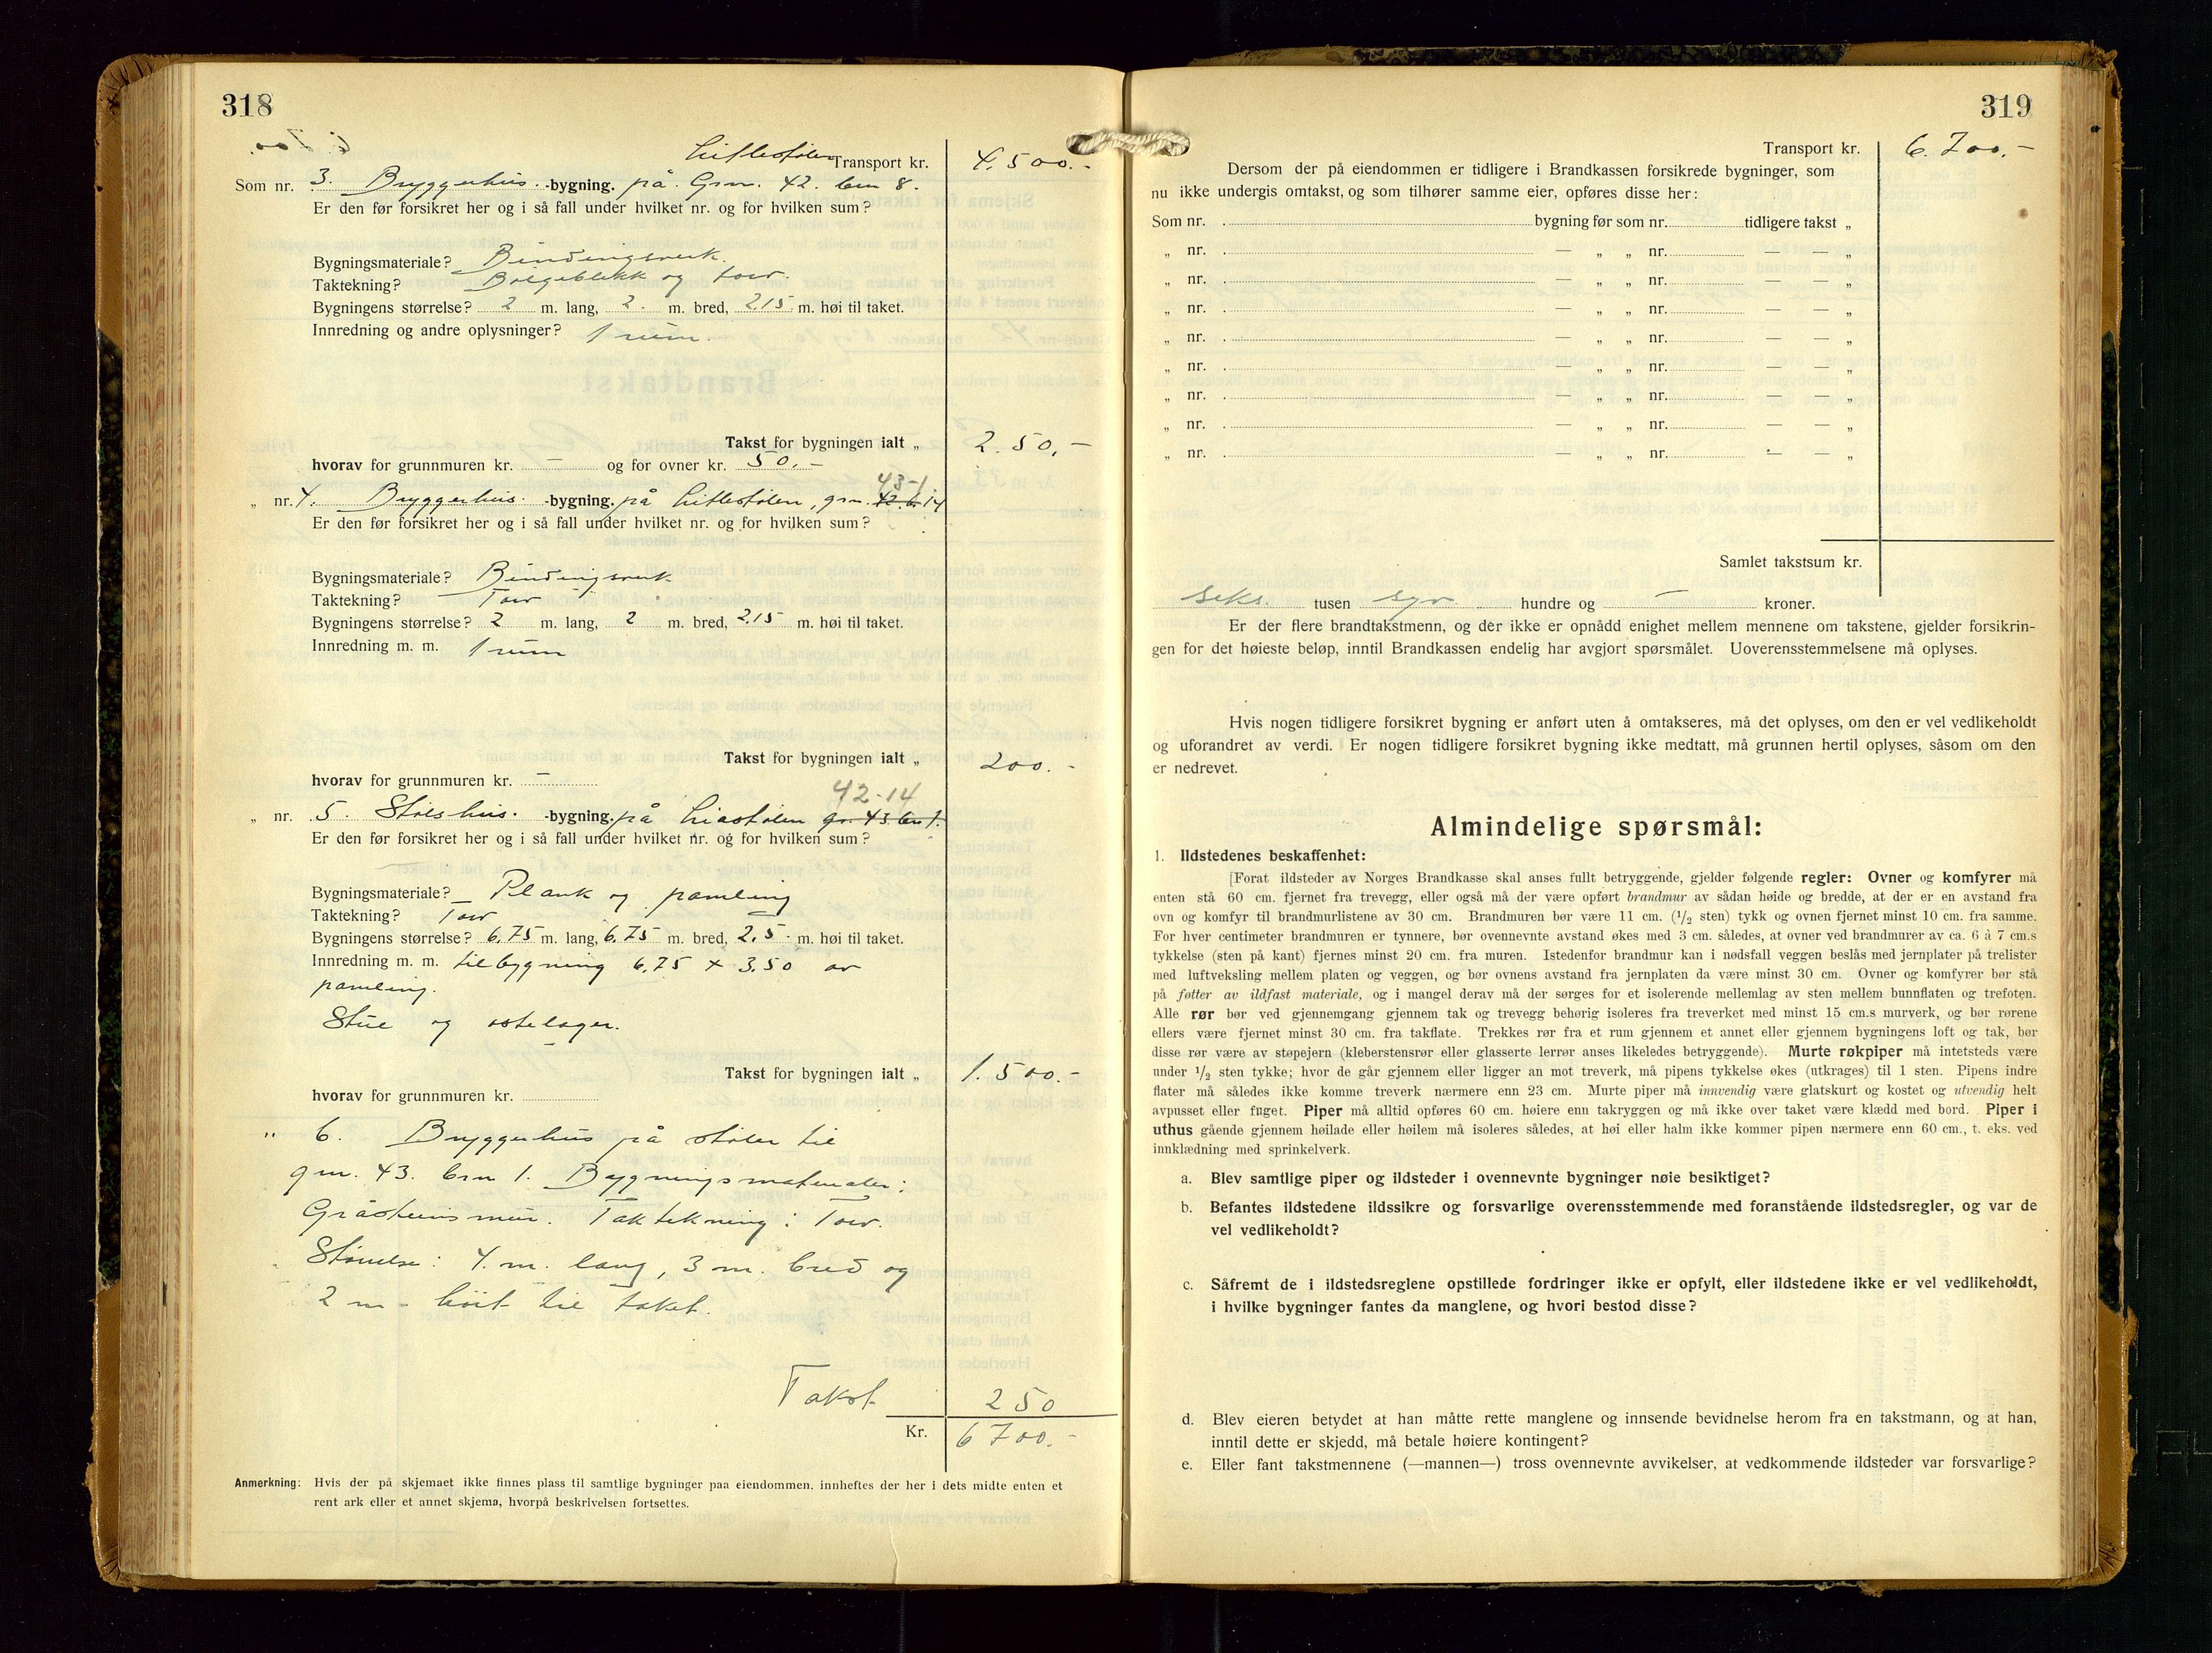 318
Littlestølen
Transport kr. 4.500.-
Som nr. 3. Bryggerhus. -bygning. på Grn. 42. brn 8.
Er den før forsikret her og i så fall under hvilket nr. og for hvilken sum?
Bygningsmateriale? Bindingsverk.
Taktekning? Bølgeblekk og torv.
Bygningens størrelse? 2 m. lang, 2. m. bred, 2,15 m. høi til taket.
Innredning og andre oplysninger? 1 rum.
Takst for bygningen ialt „ 250,-
hvorav for grunnmuren kr. — og for ovner kr. 50.-
43-1
„ nr. 4. Bryggerhus. -bygning. på Littlestølen, grn. 14
Er den før forsikret her og i så fall under hvilket nr. og for hvilken sum?
Bygningsmateriale? Bindingsverk
Taktekning? Torv
Bygningens størrelse? 2 m. lang, 2 m. bred, 2,15 m. høi til taket.
Innredning m. m. 1 rum
Takst for bygningen ialt „ 200.-
hvorav for grunnmuren kr. —
42-14
„ nr. 5. Stølshus. -bygning. på Liastølen gr. 43 brn 1.
Er den før forsikret her og i så fall under hvilket nr. og for hvilken sum?
Bygningsmateriale? Plank og paneling
Taktekning? Torv
Bygningens størrelse? 6,75 m. lang, 6,75 m. bred, 2,5 m. høi til taket.
Innredning m. m. tilbygning 6,75 x 3,50 av
paneling.
Stue og ostelager.
Takst for bygningen ialt „ 1.500.-
hvorav for grunnmuren kr.
„ 6. Bryggerhus på stølen til
grn. 43. brn 1. Bygningsmaterialer:
Gråsteinsmur. Taktekning: Torv.
Størrelse: 4. m. lang, 3 m. bred og
2 m. høit til taket.
Takst 250
Kr. 6700.-
Anmerkning: Hvis der på skjemaet ikke finnes plass til samtlige bygninger paa eiendommen, innheftes der her i dets midte enten et
rent ark eller et annet skjema, hvorpå beskrivelsen fortsettes.
319
Transport kr. 6.700.-
Dersom der på eiendommen er tidligere i Brandkassen forsikrede bygninger, som
nu ikke undergis omtakst, og som tilhører samme eier, opføres disse her:
Som nr. bygning før som nr. tidligere takst „
„ nr. — „ „ nr. — — „
„ nr. — „ „ nr. — — „
„ nr. — „ „ nr. — — „
„ nr. — „ „ nr. — — „
„ nr. — „ „ nr. — — „
„ nr. — „ „ nr. — — „
„ nr. — „ „ nr. — — „
„ nr. — „ „ nr. — — „
Samlet takstsum kr.
seks. tusen syv hundre og — kroner.
Er der flere brandtakstmenn, og der ikke er opnådd enighet mellem mennene om takstene, gjelder forsikrin-
gen for det høieste beløp, inntil Brandkassen endelig har avgjort spørsmålet. Uoverensstemmelsene må oplyses.
Hvis nogen tidligere forsikret bygning er anført uten å omtakseres, må det oplyses, om den er vel vedlikeholdt
og uforandret av verdi. Er nogen tidligere forsikret bygning ikke medtatt, må grunnen hertil oplyses, såsom om den
er nedrevet.
Almindelige spørsmål:
1. Ildstedenes beskaffenhet:
[Forat ildsteder av Norges Brandkasse skal anses fullt betryggende, gjelder følgende regler: Ovner og komfyrer må
enten stå 60 cm. fjernet fra trevegg, eller også må der være opført brandmur av sådan høide og bredde, at der er en avstand fra
ovn og komfyr til brandmurlistene av 30 cm. Brandmuren bør være 11 cm. (1/2 sten) tykk og ovnen fjernet minst 10 cm. fra samme.
For hver centimeter brandmuren er tynnere, bør ovennevnte avstand økes med 3 cm. således, at ovner ved brandmurer av ca. 6 à 7 cm.s
tykkelse (sten på kant) fjernes minst 20 cm. fra muren. Istedenfor brandmur kan i nødsfall veggen beslås med jernplater på trelister
med luftveksling mellem platen og veggen, og bør ovnens avstand fra jernplaten da være minst 30 cm. Ovner og komfyrer bør stå
på føtter av ildfast materiale, og i mangel derav må der sørges for et isolerende mellemlag av sten mellem bunnflaten og trefoten.
Alle rør bør ved gjennemgang gjennem tak og trevegg behørig isoleres fra treverket med minst 15 cm.s murverk, og bør rørene
ellers være fjernet minst 30 cm. fra takflate. Trekkes rør fra et rum gjennem et annet eller gjennem bygningens loft og tak, bør
disse rør være av støpejern (kleberstensrør eller glasserte lerrør anses likeledes betryggende). Murte røkpiper må intetsteds være
under 1/2 sten tykke; hvor de går gjennem eller ligger an mot treverk, må pipens tykkelse økes (utkrages) til 1 sten. Pipens indre
flater må således ikke komme treverk nærmere enn 23 cm. Murte piper må innvendig være glatskurt og kostet og utvendig helt
avpusset eller fuget. Piper må alltid opføres 60 cm. høiere enn takryggen og må ikke over taket være klædd med bord. Piper i
uthus gående gjennem høilade eller høilem må isoleres således, at høi eller halm ikke kommer pipen nærmere enn 60 cm., t. eks. ved
innklædning med sprinkelverk.
a. Blev samtlige piper og ildsteder i ovennevnte bygninger nøie besiktiget?
b. Befantes ildstedene ildssikre og forsvarlige overensstemmende med foranstående ildstedsregler, og var de
vel vedlikeholdt?
c. Såfremt de i ildstedsreglene opstillede fordringer ikke er opfylt, eller ildstedene ikke er vel vedlikeholdt,
i hvilke bygninger fantes da manglene, og hvori bestod disse?
d. Blev eieren betydet at han måtte rette manglene og innsende bevidnelse herom fra en takstmann, og at han,
inntil dette er skjedd, må betale høiere kontingent?
e. Eller fant takstmennene (—mannen—) tross ovennevnte avvikelser, at vedkommende ildsteder var forsvarlige?